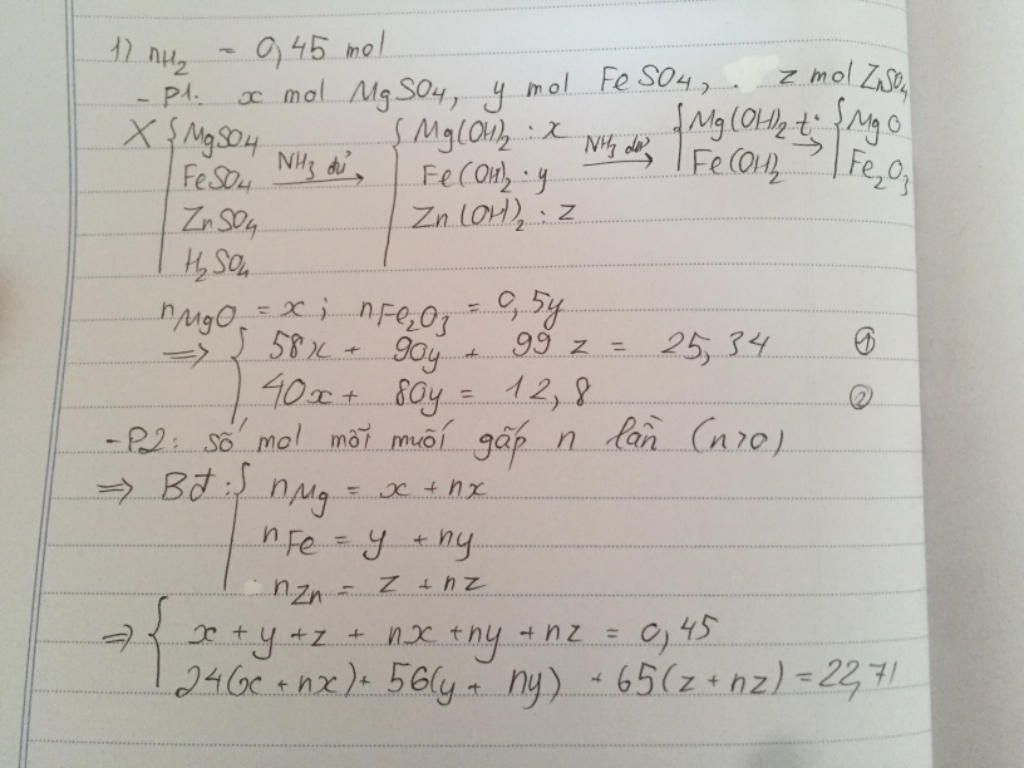 1) nH2 = 0,45 mol
- P1: x mol MgSO4, y mol FeSO4, z mol ZnSO4
X { MgSO4 FeSO4 ZnSO4 H2SO4 NH3 dư → { Mg(OH)2 : x Fe(OH)2 : y Zn(OH)2 : z NH3 dư → { Mg(OH)2 Fe(OH)2 t° → { MgO Fe2O3
nMgO = x ; nFe2O3 = 0,5y
=> { 58x + 90y + 99z = 25,34 ①
40x + 80y = 12,8 ②
- P2: số mol mỗi muối gấp n lần (n>0)
=> Bđ : { nMg = x + nx
nFe = y + ny
nZn = z + nz
=> { x + y + z + nx + ny + nz = 0,45
24(x + nx) + 56(y + ny) + 65(z + nz) = 22,71